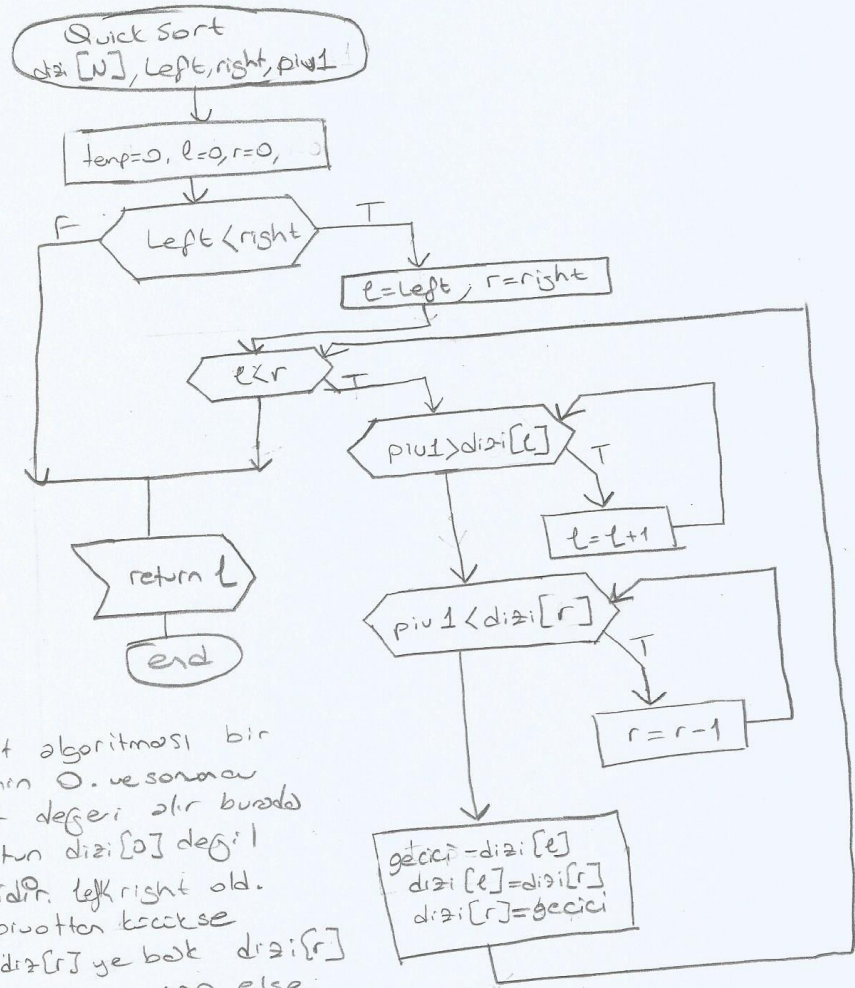 Quick Sort
dizi [N], Left, right, piv1
temp=0, l=0, r=0,
Left < right
F
T
l=Left, r=right
l<r
T
piv1>dizi[l]
T
l=l+1
piv1<dizi[r]
T
r=r-1
gecici=dizi[l]
dizi[l]=dizi[r]
dizi[r]=gecici
return l
end
algoritması bir
0. ve sonuncu
değeri alır burada
dizi[0] değil
left<right old.
pivottan kücükse
diz[r] ye bak dizi[r]
else